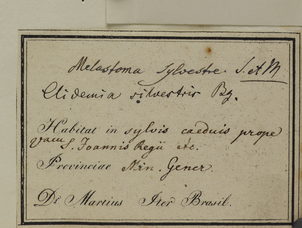 Melastoma sylvestre S et M
Clidemia silvestris Pg.
Habitat in sylvis caeduis prope
S. Joannis Regii etc.
Provinciae Min. Gener.
Dr Martius Iter Brasil.